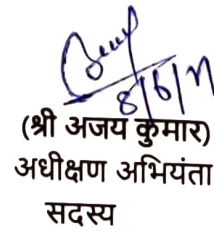 8/6/21
(श्री अजय कुमार)
अधीक्षण अभियंता
सदस्य